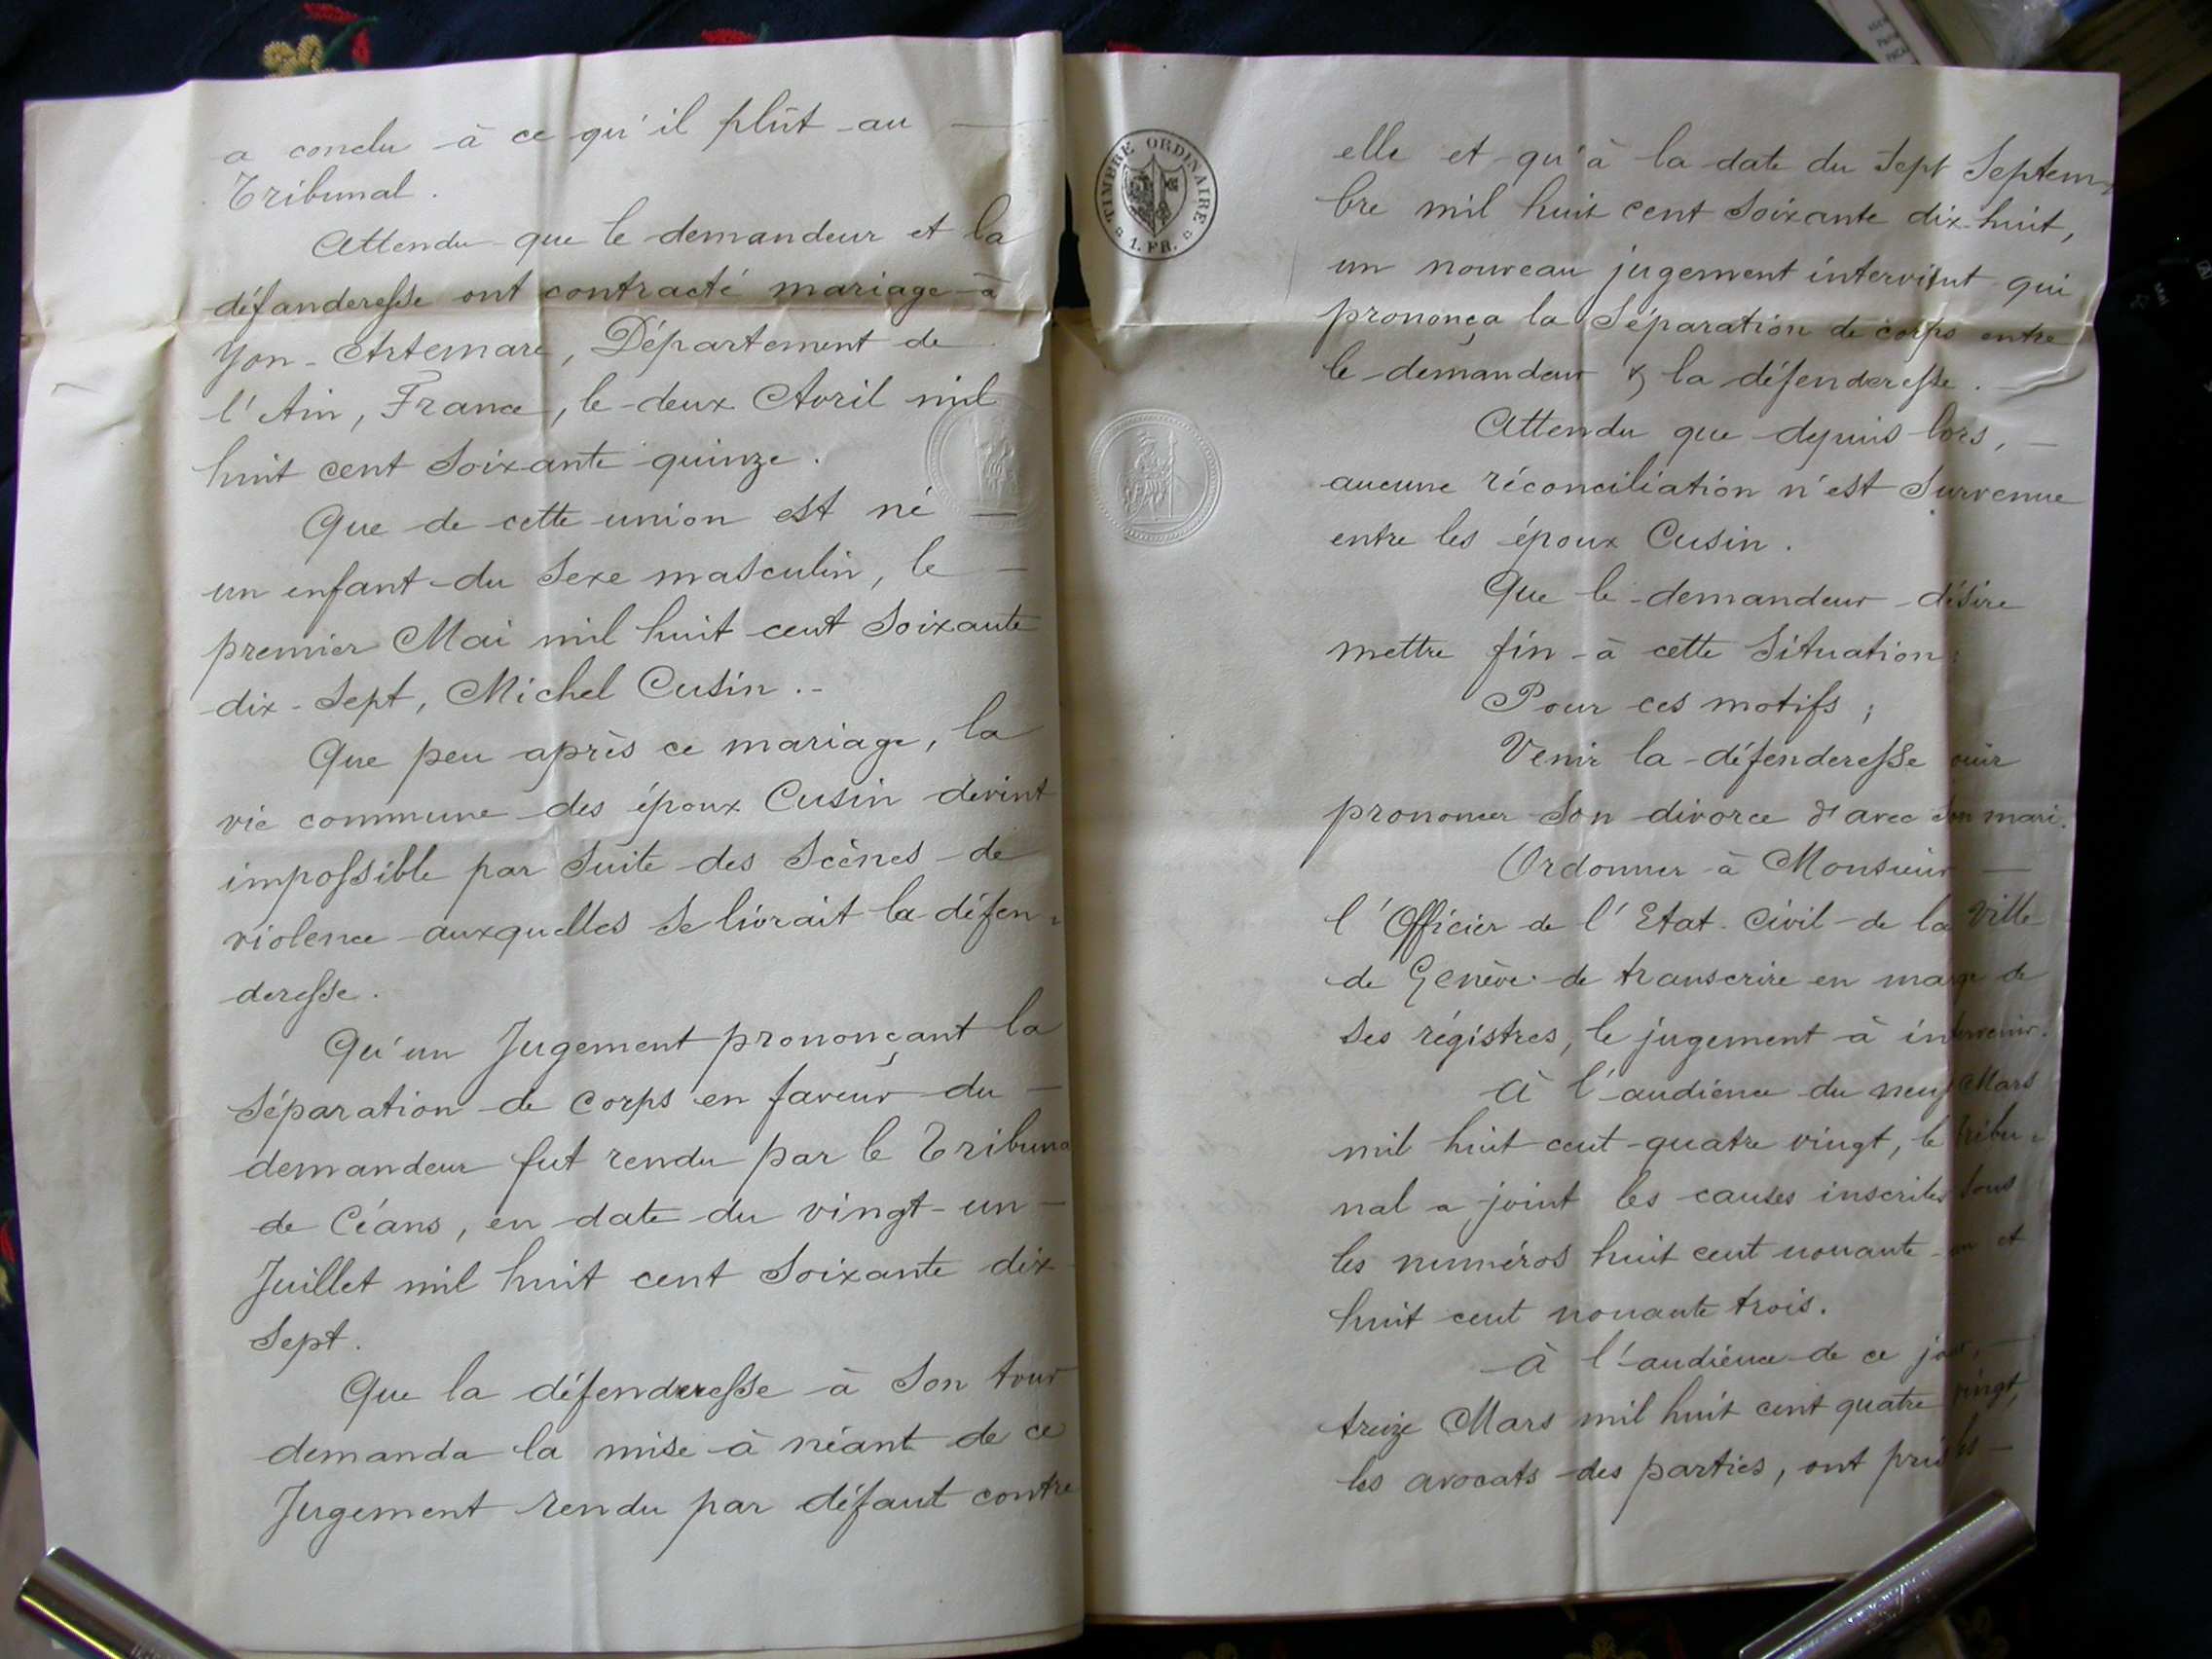 a conclu à ce qu'il plût au —
Tribunal.
Attendu que le demandeur et la
défanderesse ont contracté mariage à
Yon-Artemare, Département de
l'Ain, France, le deux Avril mil
huit cent Soixante quinze.
Que de cette union est né —
un enfant du Sexe masculin, le —
premier Mai mil huit cent Soixante
dix-Sept, Michel Cusin.-
Que peu après ce mariage, la
vie commune des époux Cusin devint
impossible par Suite des Scènes de
violence auxquelles Se livrait la défen=
deresse.
Qu'un Jugement prononçant la
Séparation de Corps en faveur du —
demandeur fut rendu par le Tribuna
de Céans, en date du vingt-un —
Juillet mil huit cent Soixante dix
Sept.
Que la défenderesse à Son tour
demanda la mise à néant de ce
Jugement rendu par défaut contre
TIMBRE ORDINAIRE
1. FR.
elle et qu'à la date du Sept Septem=
bre mil huit cent Soixante dix-huit,
un nouveau jugement intervint qui
prononça la Séparation de corps entre
le demandeur & la défenderesse. —
Attendu que depuis lors, —
aucune réconciliation n'est Survenue
entre les époux Cusin.
Que le demandeur désire
mettre fin à cette Situation:
Pour ces motifs;
Venir la défenderesse ouir
prononcer Son divorce d'avec Son mari.
Ordonner à Monsieur —
l'Officier de l'Etat-Civil de la Ville
de Genève de transcrire en marge de
Ses régistres, le jugement à intervenir.
à l'audience du neuf Mars
mil huit cent quatre vingt, le tribu=
nal a joint les causes inscrites Sous
les numéros huit cent nonante-un et
huit cent nonante trois.
à l'audience de ce jour, —
treize Mars mil huit cent quatre vingt,
les avocats des parties, ont pris les —